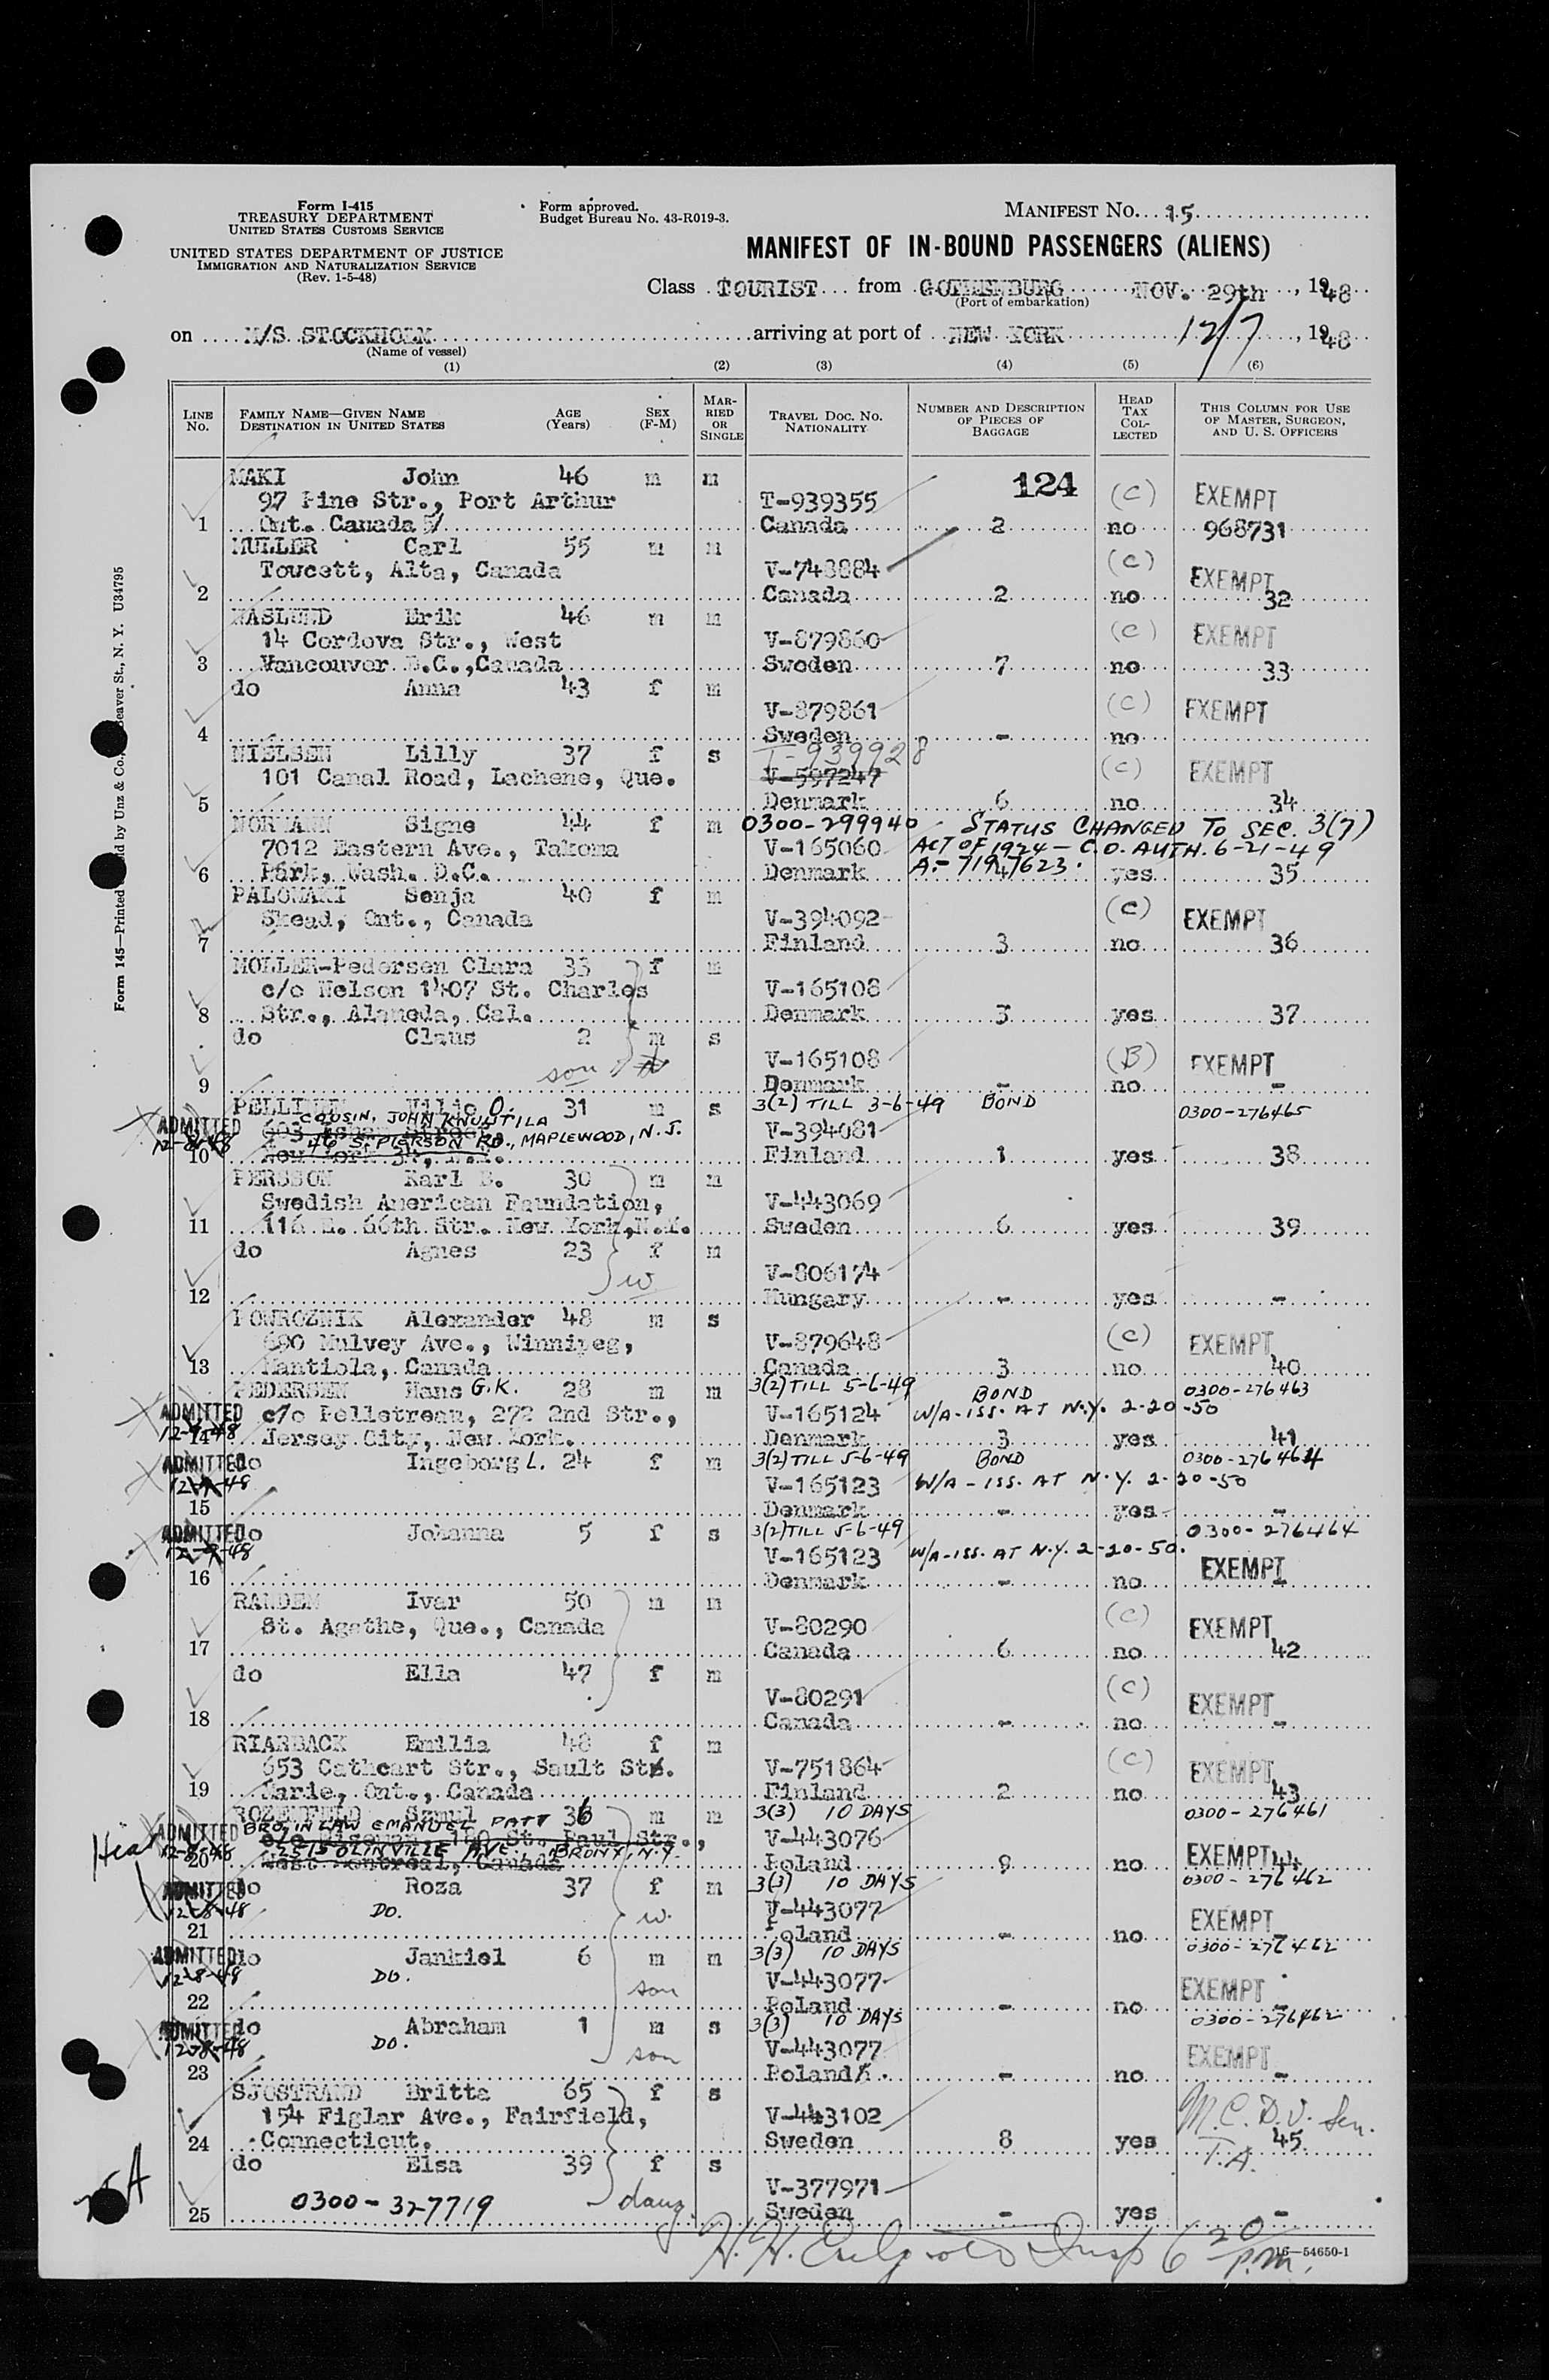 Form I-415
TREASURY DEPARTMENT
UNITED STATES CUSTOMS SERVICE
UNITED STATES DEPARTMENT OF JUSTICE
IMMIGRATION AND NATURALIZATION SERVICE
(Rev. 1-5-48)
Form approved.
Budget Bureau No. 43-R019-3.
MANIFEST No. 15
MANIFEST OF IN-BOUND PASSENGERS (ALIENS)
Class TOURIST from GOTHENBURG NOV. 29th, 1948
(Port of embarkation)
on M/S STOCKHOLM arriving at port of NEW YORK 12/7, 1948
(Name of vessel)
(1) (2) (3) (4) (5) (6)
LINE No. FAMILY NAME—GIVEN NAME DESTINATION IN UNITED STATES AGE (Years) SEX (F-M) MARRIED OR SINGLE TRAVEL DOC. NO. NATIONALITY NUMBER AND DESCRIPTION OF PIECES OF BAGGAGE HEAD TAX COLLECTED THIS COLUMN FOR USE OF MASTER, SURGEON, AND U. S. OFFICERS
MAKI John 46 m m 124
97 Pine Str., Port Arthur T-939355 (C) EXEMPT
1 Ont. Canada Canada 2 no 968731
MULLER Carl 55 m m
Toucett, Alta, Canada V-748884 (C) EXEMPT
2 Canada 2 no 32
NASLUND Erik 46 m m
14 Cordova Str., West V-879860 (C) EXEMPT
3 Vancouver B.C., Canada Sweden 7 no 33
do Anna 43 f m
V-879861 (C) EXEMPT
4 Sweden - no
NIELSEN Lilly 37 f s T-939928
101 Canal Road, Lachene, Que. V-597247 (C) EXEMPT
5 Denmark 6 no 34
NORMANN Signe 44 f m 0300-299940 STATUS CHANGED TO SEC. 3(7)
7012 Eastern Ave., Takoma V-165060 ACT OF 1924 - C.O. AUTH. 6-21-49
6 Park, Wash. D.C. Denmark A-7197623. 4 yes 35
PALOMAKI Senja 40 f m
Skead, Ont., Canada V-394092 (C) EXEMPT
7 Finland 3 no 36
MOLLER-Pedersen Clara 33 f m
c/o Nelson 1407 St. Charles V-165108
8 Str., Alameda, Cal. Denmark 3 yes 37
do Claus 2 m s
son V-165108 (B) EXEMPT
9 Denmark - no -
PELLINEN Viljo O. 31 m s 3(2) TILL 3-6-49 BOND 0300-276465
ADMITTED COUSIN, JOHN KNUUTILA V-394081
12-8-48 46 S. PIERSON RD., MAPLEWOOD, N.J.
10 New York Finland 1 yes 38
PERSSON Karl B. 30 m m
Swedish American Foundation, V-443069
11 116 E. 66th Str. New York, N.Y. Sweden 6 yes 39
do Agnes 23 f m
w V-806174
12 Hungary - yes -
POWROZNIK Alexander 48 m s
690 Mulvey Ave., Winnipeg, V-879648 (C) EXEMPT
13 Mantiola, Canada Canada 3 no 40
PEDERSEN Hans G.K. 28 m m 3(2) TILL 5-6-49 BOND 0300-276463
ADMITTED c/o Pelletreau, 272 2nd Str., V-165124 W/A-ISS. AT N.Y. 2-20-50
12-9-48 14 Jersey City, New York. Denmark 3 yes 41
ADMITTED do Ingeborg L. 24 f m 3(2) TILL 5-6-49 BOND 0300-276464
12-9-48 V-165123 W/A-ISS. AT N.Y. 2-20-50
15 Denmark - yes -
ADMITTED do Johanna 5 f s 3(2) TILL 5-6-49 0300-276464
12-9-48 V-165123 W/A-ISS. AT N.Y. 2-20-50. EXEMPT
16 Denmark - no -
RANDEN Ivar 50 m m
St. Agathe, Que., Canada V-80290 (C) EXEMPT
17 Canada 6 no 42
do Ella 47 f m
V-80291 (C) EXEMPT
18 Canada - no -
RIARBACK Emilia 48 f m
653 Cathcart Str., Sault Ste. V-751864 (C) EXEMPT
19 Marie, Ont., Canada Finland 2 no 43
ROZENFELD Szmul 36 m m 3(3) 10 DAYS 0300-276461
ADMITTED BRO IN LAW EMANUEL PATT
c/o 180 St. Paul Str., V-443076
12-8-48 2515 OLINVILLE AVE. BRONX, N.Y.
20 West Montreal, Canada Poland 9 no EXEMPT 44
ADMITTED do Roza 37 f m 3(3) 10 DAYS 0300-276462
12-8-48 DO. w. V-443077 EXEMPT
21 Poland - no -
ADMITTED do Jankiel 6 m m 3(3) 10 DAYS 0300-276462
12-8-48 DO. son V-443077 EXEMPT
22 Poland - no -
ADMITTED do Abraham 1 m s 3(3) 10 DAYS 0300-276462
12-8-48 DO. son V-443077 EXEMPT
23 Poland. - no -
SJOSTRAND Britta 65 f s
154 Figlar Ave., Fairfield, V-443102 M.C.D.V. Sen.
24 Connecticut. Sweden 8 yes 45
do Elsa 39 f s T.A.
0300-327719 daug. V-377971
25 Sweden - yes -
Insp 6 20 P.M.
16—54650-1
Form 145—Printed and by Unz & Co., Beaver St., N. Y. U34795